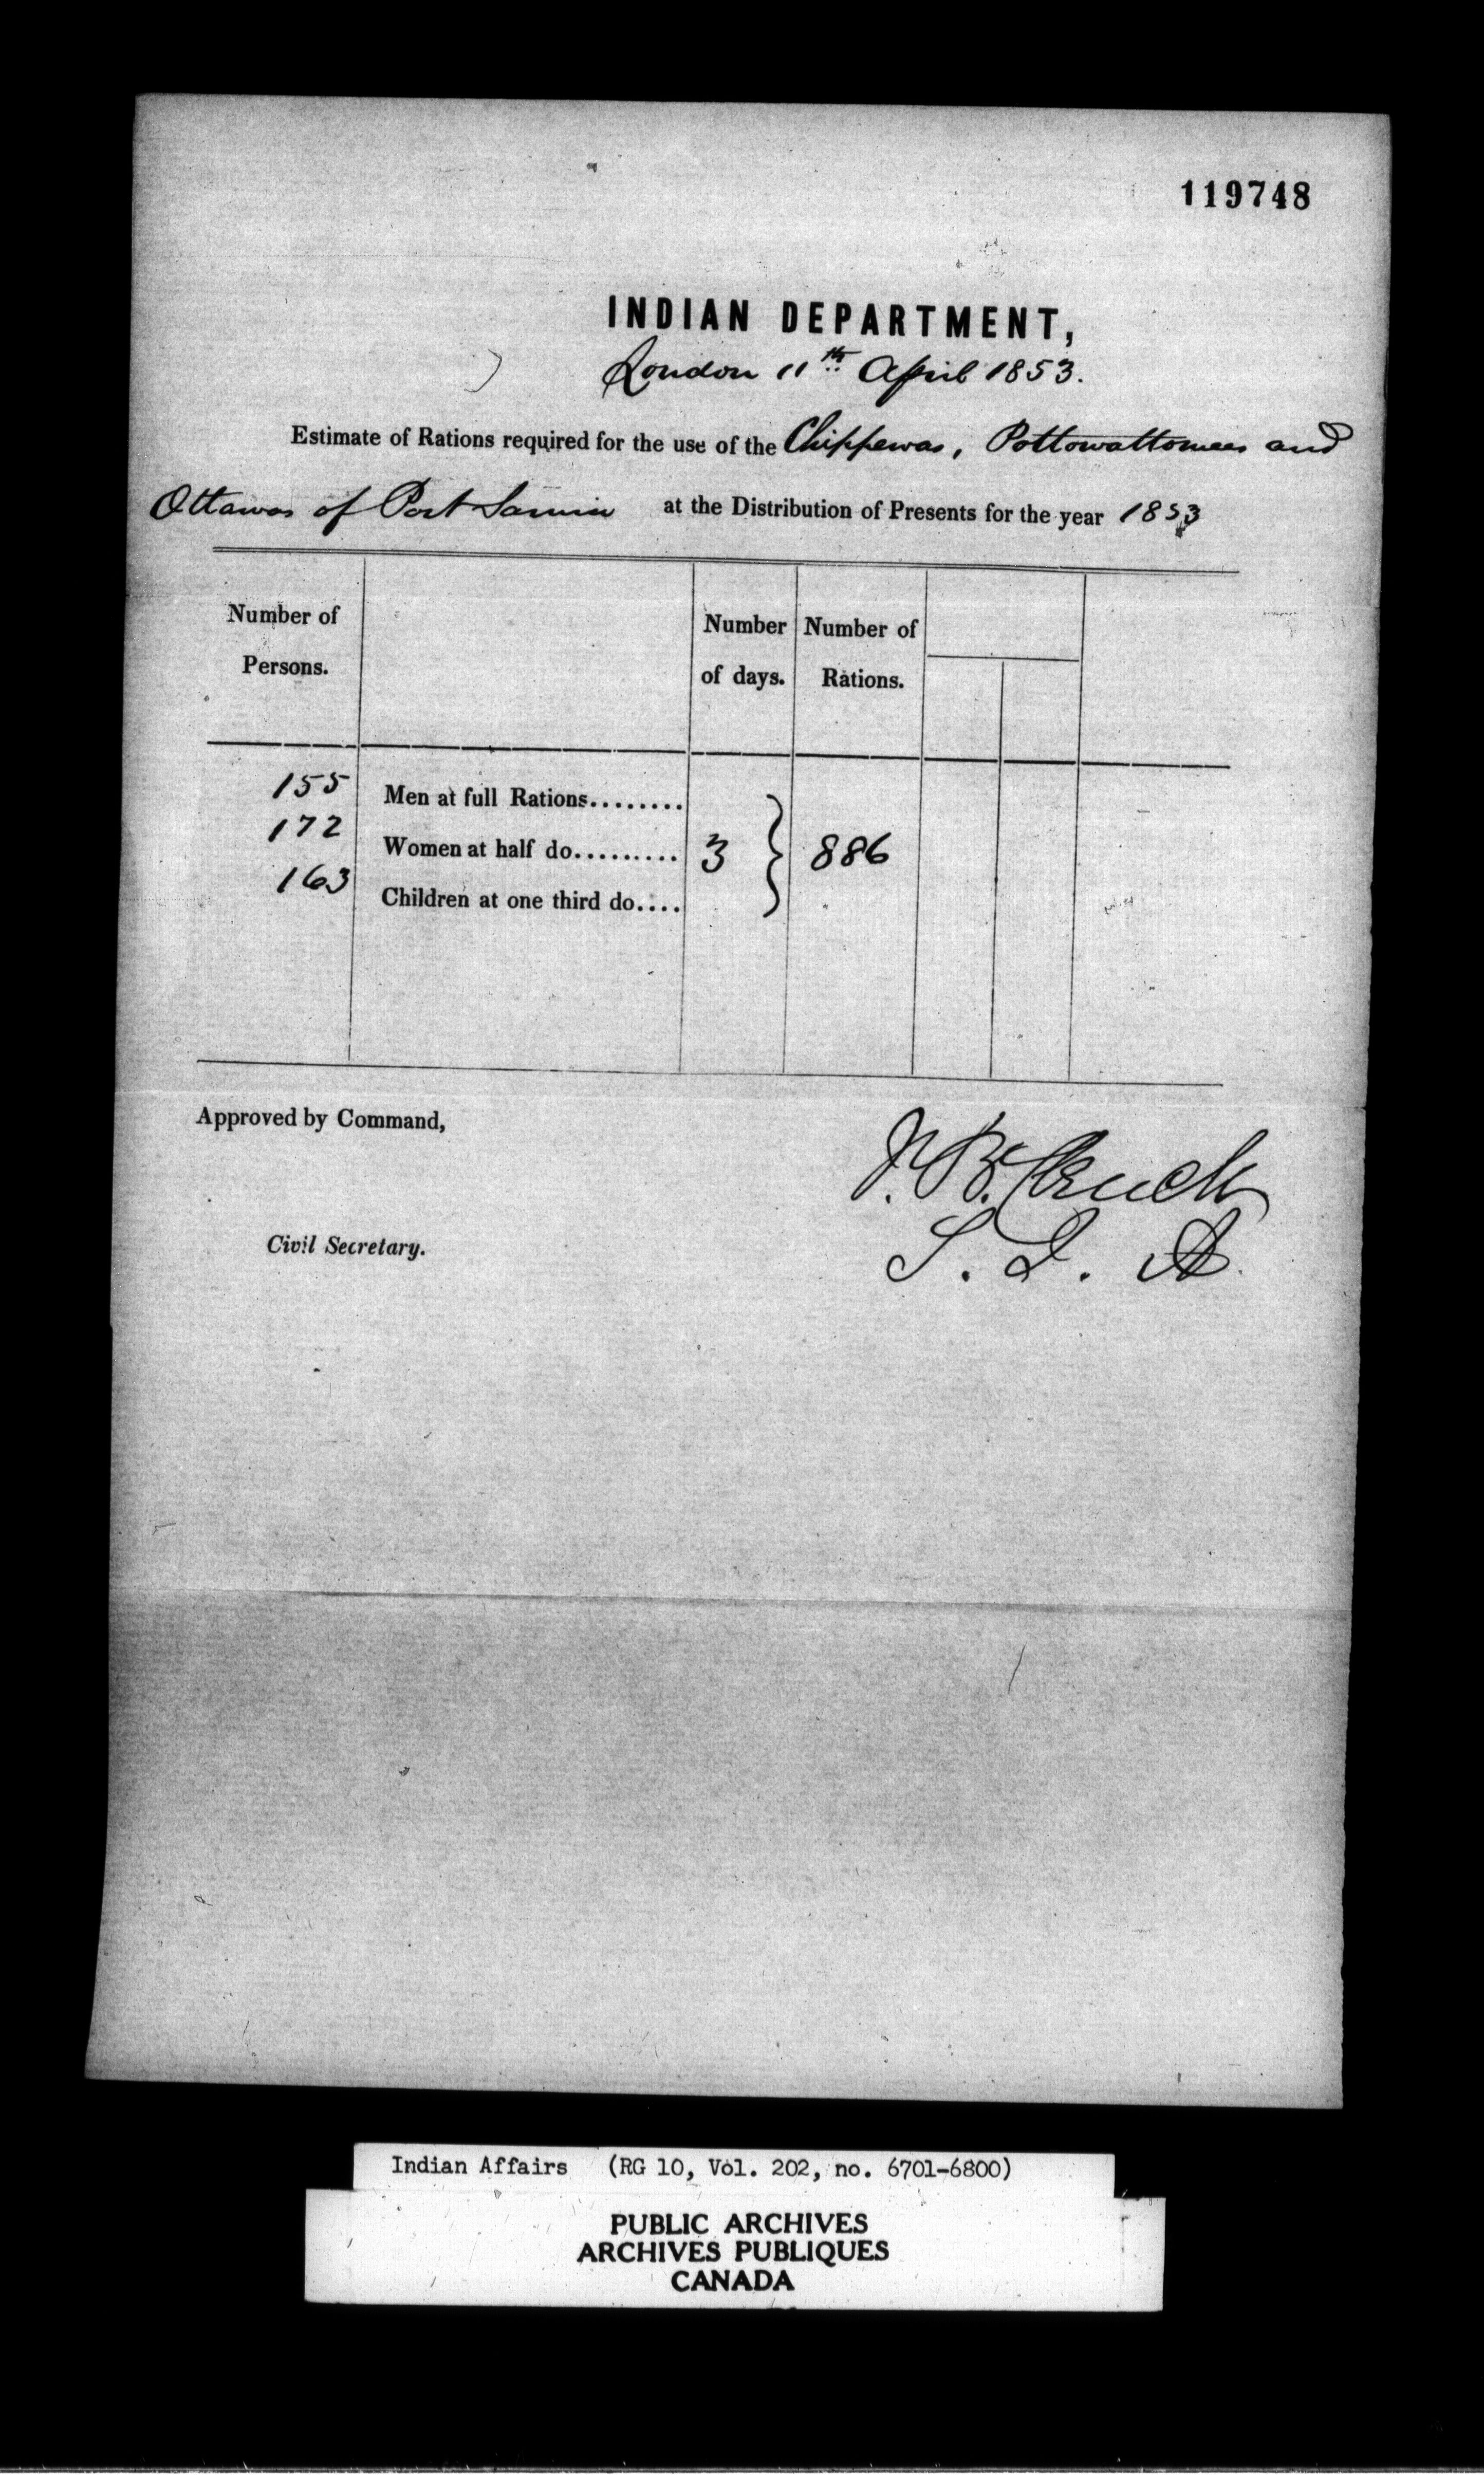 119748
INDIAN DEPARTMENT,
London 11th April 1853.
Estimate of Rations required for the use of the Chippewas, Pottowattomees and
Ottawas of Port Sarnia at the Distribution of Presents for the year 1853
Number of Persons. Number of days. Number of Rations.
155 Men at full Rations........
172 Women at half do......... 3 } 886
163 Children at one third do....
Approved by Command,
J. B. Clench
S. I. A.
Civil Secretary.
Indian Affairs (RG 10, Vol. 202, no. 6701-6800)
PUBLIC ARCHIVES
ARCHIVES PUBLIQUES
CANADA